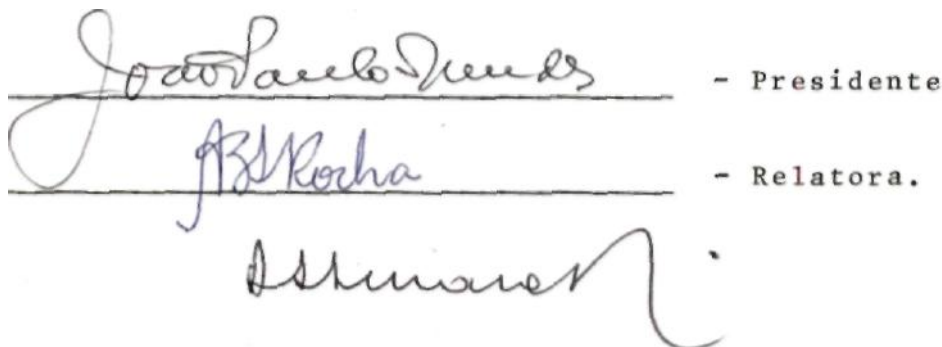 João Paulo Mendes - Presidente
ABSRocha - Relatora.